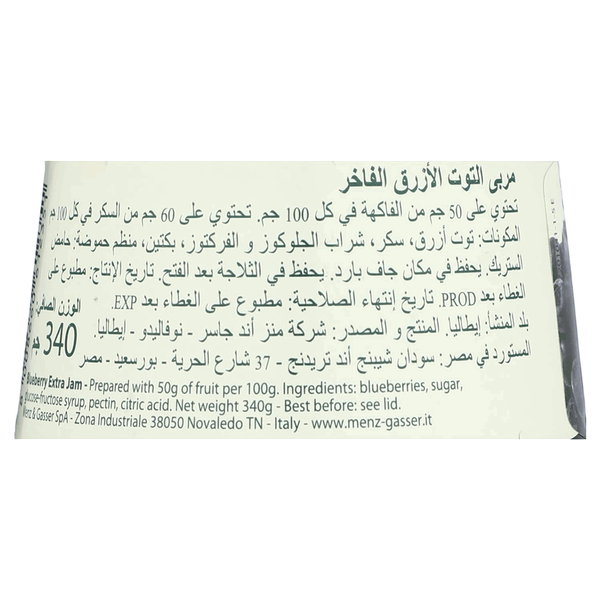 مربى التوت الأزرق الفاخر
تحتوي على 50 جم من الفاكهة في كل 100 جم. تحتوي على 60 جم من السكر في كل 100 جم
المكونات: توت أزرق، سكر، شراب الجلوكوز و الفركتوز، بكتين، منظم حموضة: حامض
الستريك. يحفظ في مكان جاف بارد. يحفظ في الثلاجة بعد الفتح. تاريخ الإنتاج: مطبوع على
الغطاء بعد PROD. تاريخ إنتهاء الصلاحية: مطبوع على الغطاء بعد EXP.
بلد المنشأ: إيطاليا. المنتج و المصدر: شركة منز أند جاسر - نوفاليدو - إيطاليا.
المستورد في مصر: سودان شيبنج أند تريدنج - 37 شارع الحرية - بورسعيد - مصر
الوزن الصافي:
340 جم
Blueberry Extra Jam - Prepared with 50g of fruit per 100g. Ingredients: blueberries, sugar,
glucose-fructose syrup, pectin, citric acid. Net weight 340g - Best before: see lid.
Menz & Gasser SpA - Zona Industriale 38050 Novaledo TN - Italy - www.menz-gasser.it